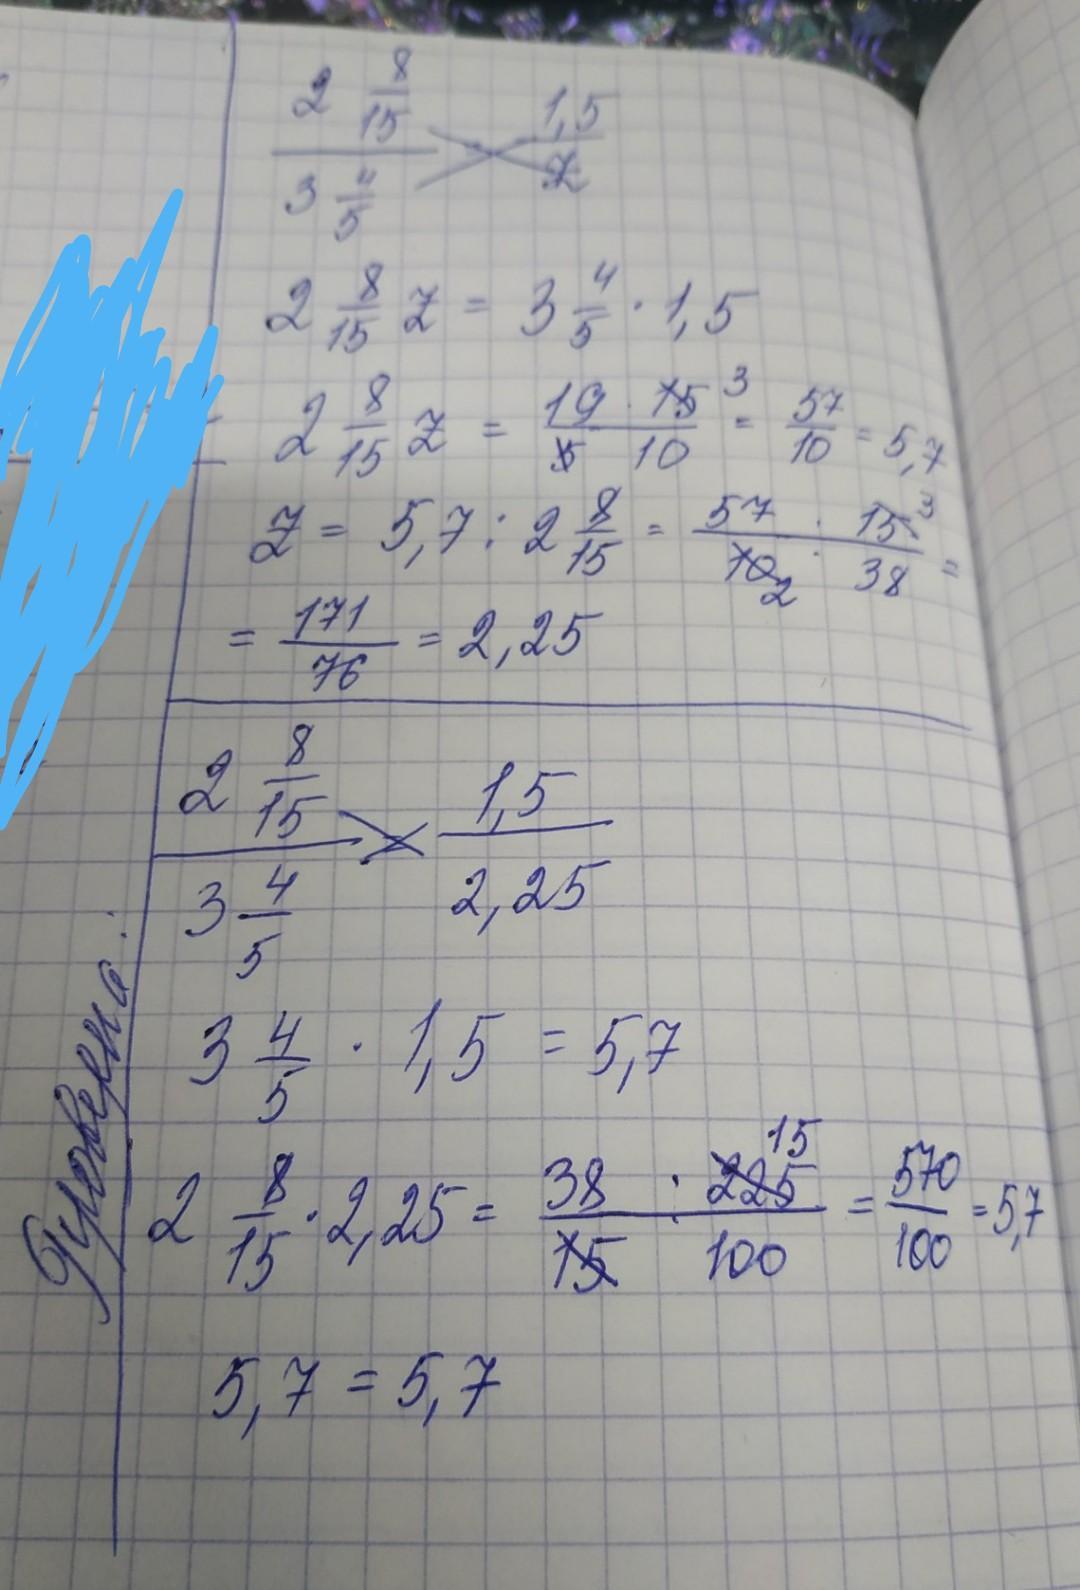 2 8/15 / 3 4/5 = 1,5 / z
2 8/15 z = 3 4/5 · 1,5
2 8/15 z = 19 · 15 3 / 5 10 = 57/10 = 5,7
z = 5,7 : 2 8/15 = 57 · 15 3 / 10 2 · 38 =
= 171/76 = 2,25
2 8/15 / 3 4/5 × 1,5 / 2,25
Проверка:
3 4/5 · 1,5 = 5,7
2 8/15 · 2,25 = 38 : 225 15 / 15 : 100 = 570/100 = 5,7
5,7 = 5,7